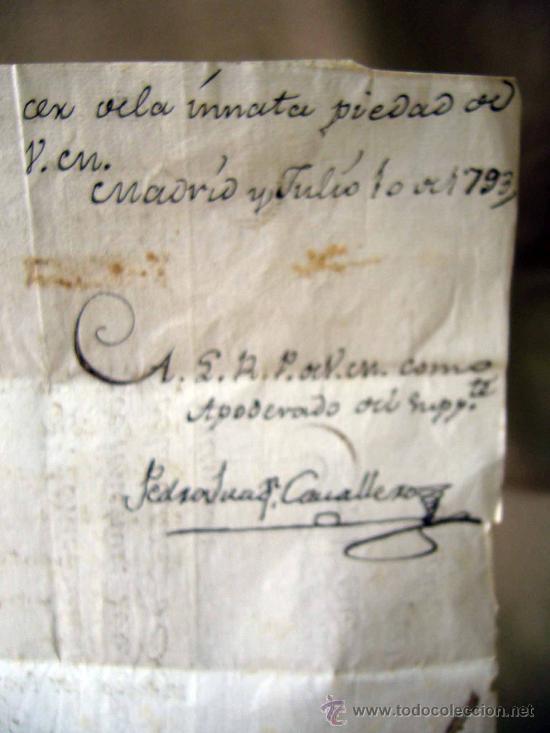 cer de la innata piedad de
V. M.
Madrid y Julio 10 de 1793
A. L. R. P. de V. M. como
Apoderado del Supp.te
Pedro Juaq.n Cavallero
www.todocoleccion.net